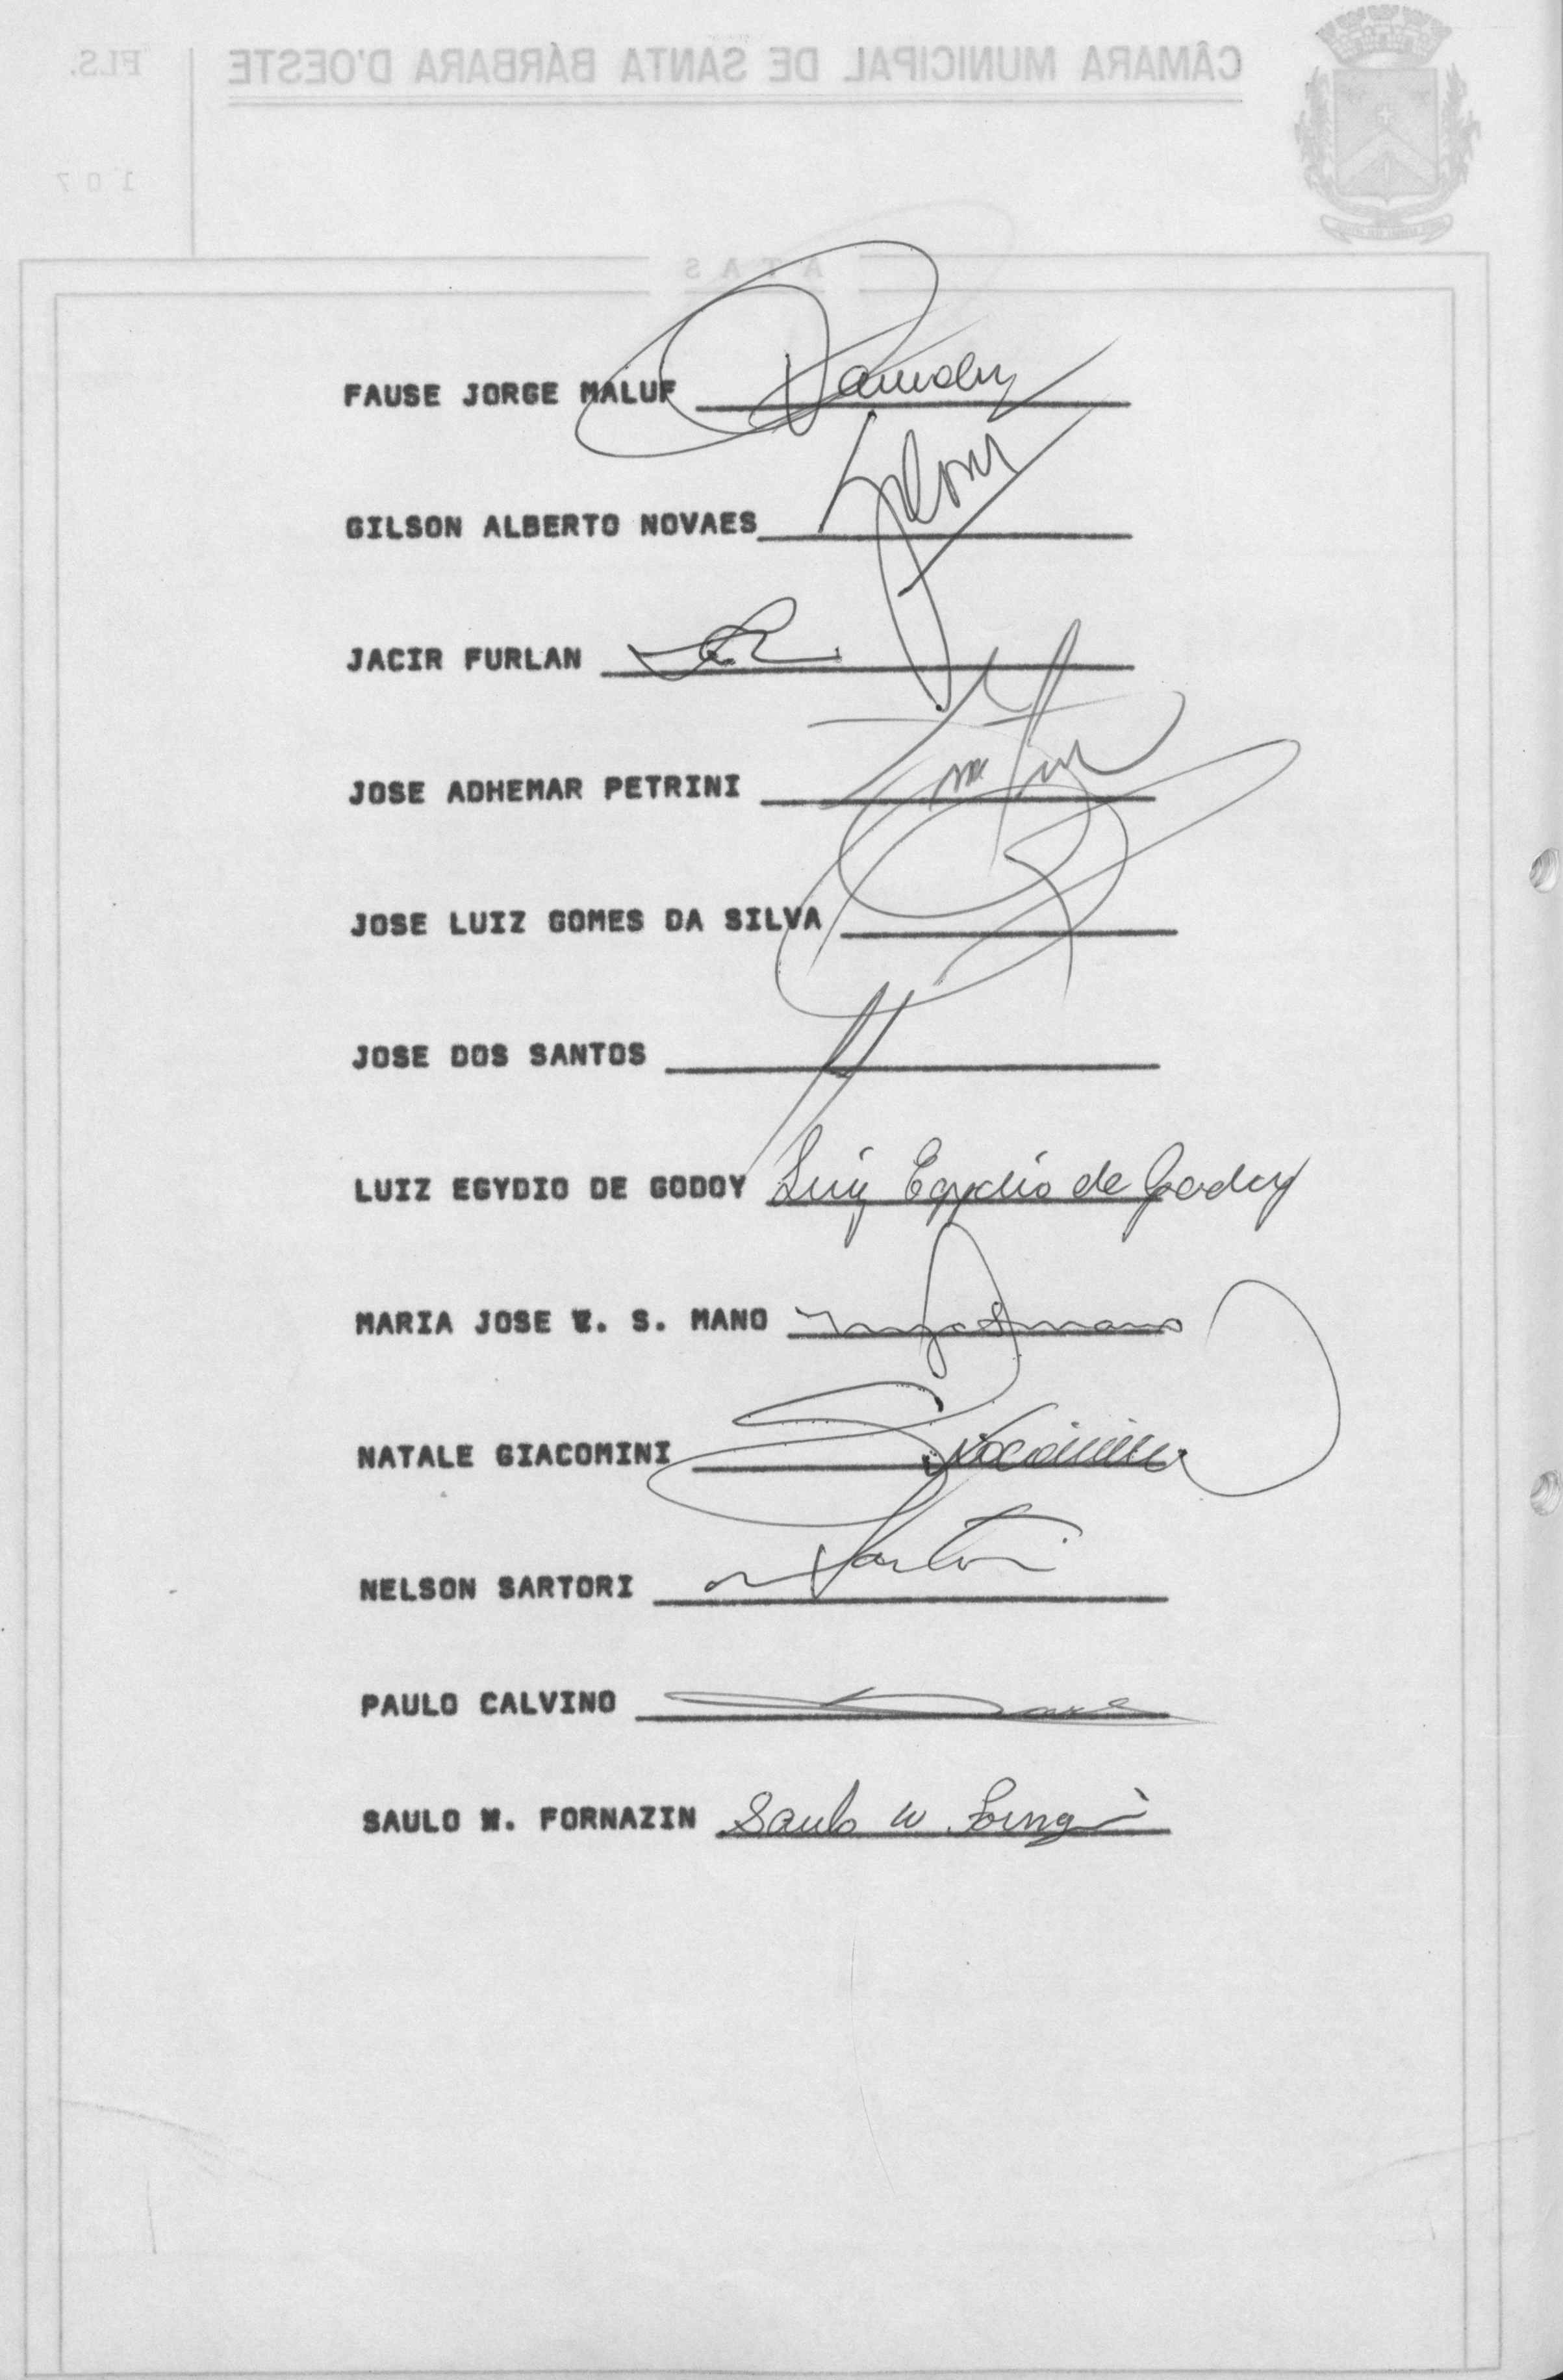 CÂMARA MUNICIPAL DE SANTA BÁRBARA D'OESTE
FLS.
107
ATAS
FAUSE JORGE MALUF
GILSON ALBERTO NOVAES
JACIR FURLAN
JOSE ADHEMAR PETRINI
JOSE LUIZ GOMES DA SILVA
JOSE DOS SANTOS
LUIZ EGYDIO DE GODOY Luiz Egydio de Godoy
MARIA JOSE V. S. MANO
NATALE GIACOMINI
NELSON SARTORI Sartori
PAULO CALVINO
SAULO W. FORNAZIN Saulo W.